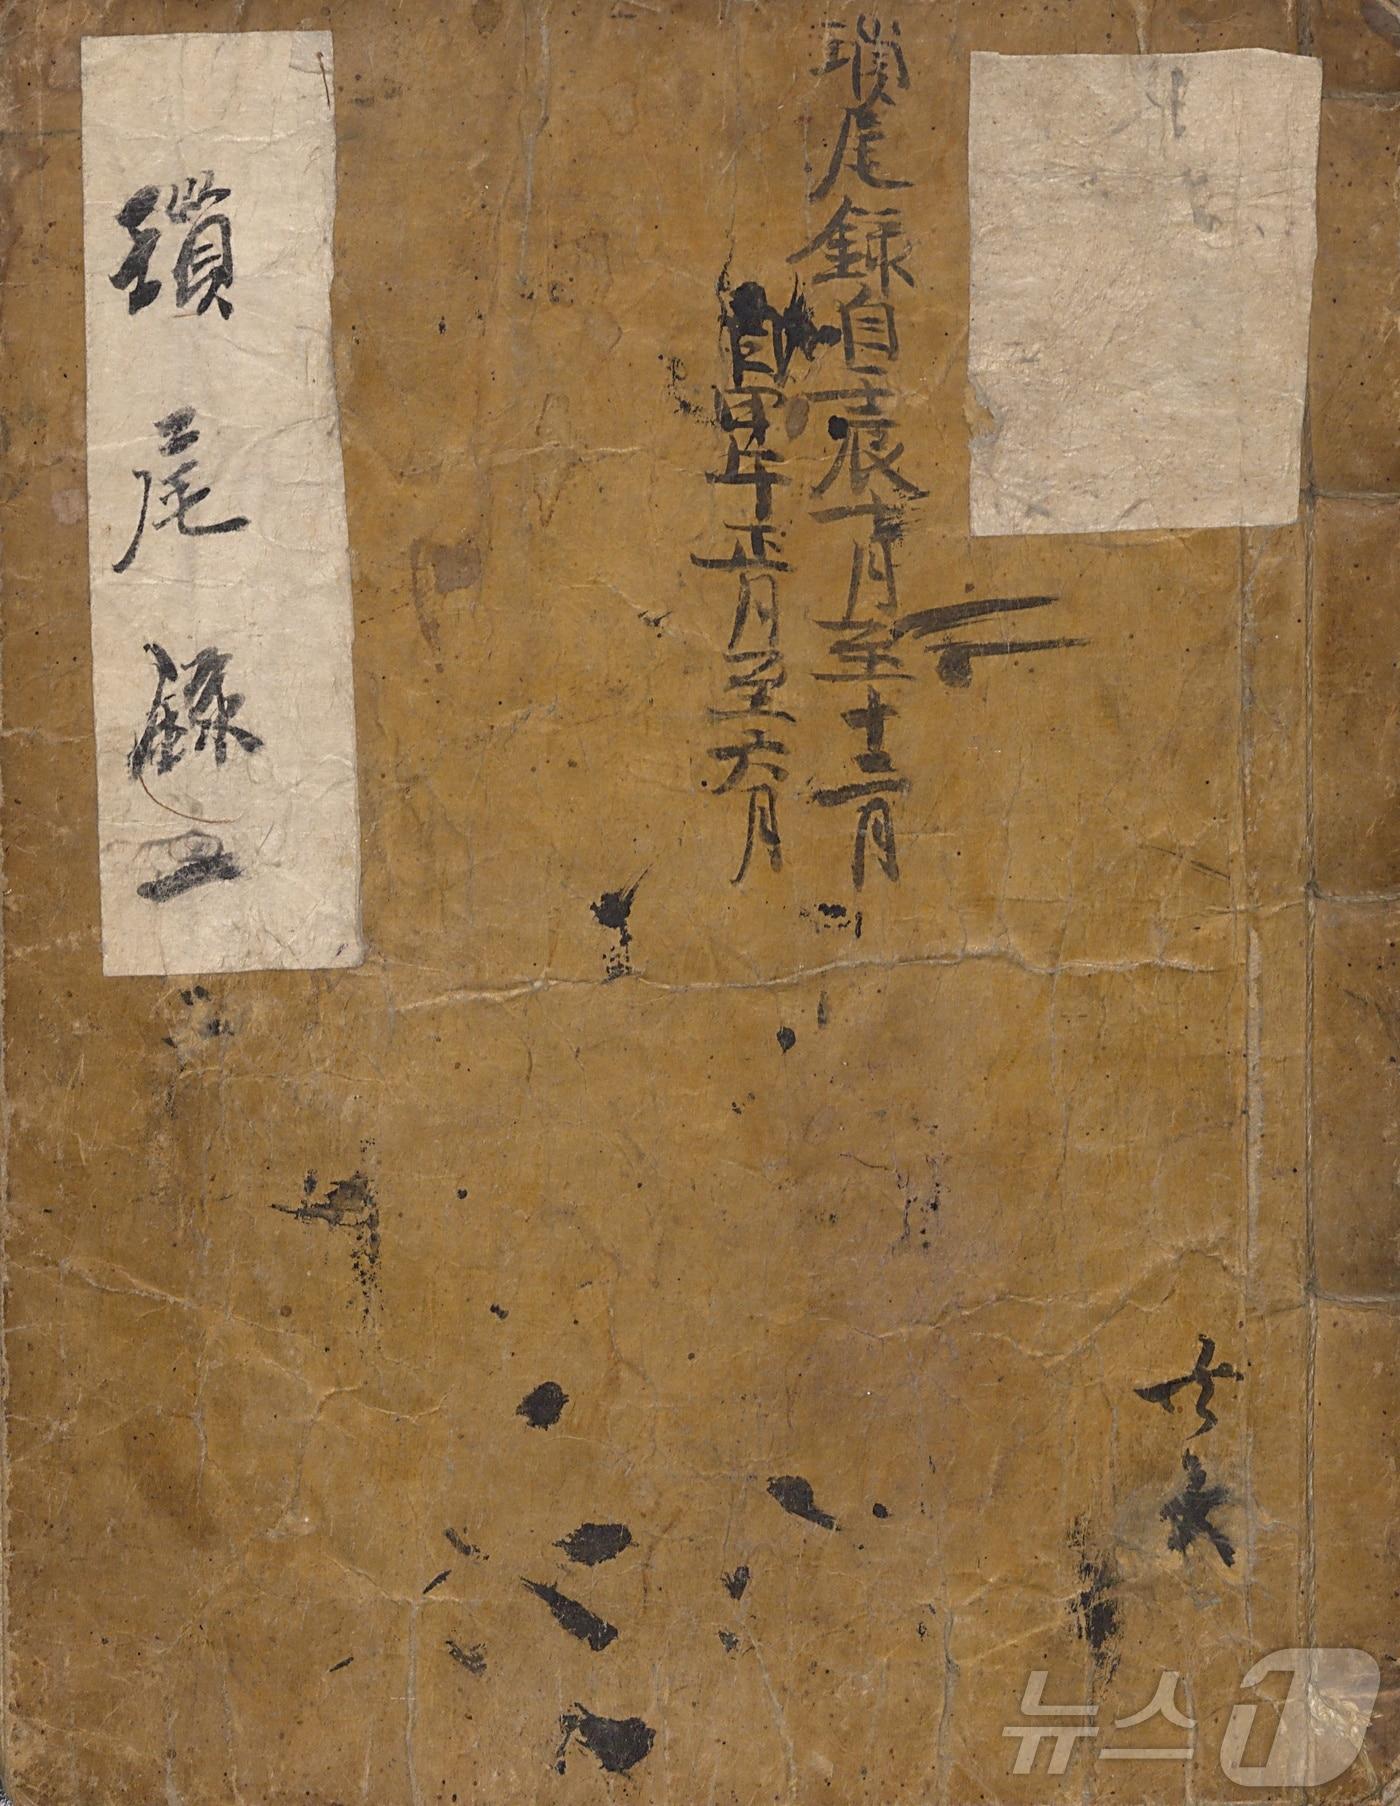 瑣尾錄自壬辰十月至十二月
甲午正月至六月
瑣尾錄二
뉴스1